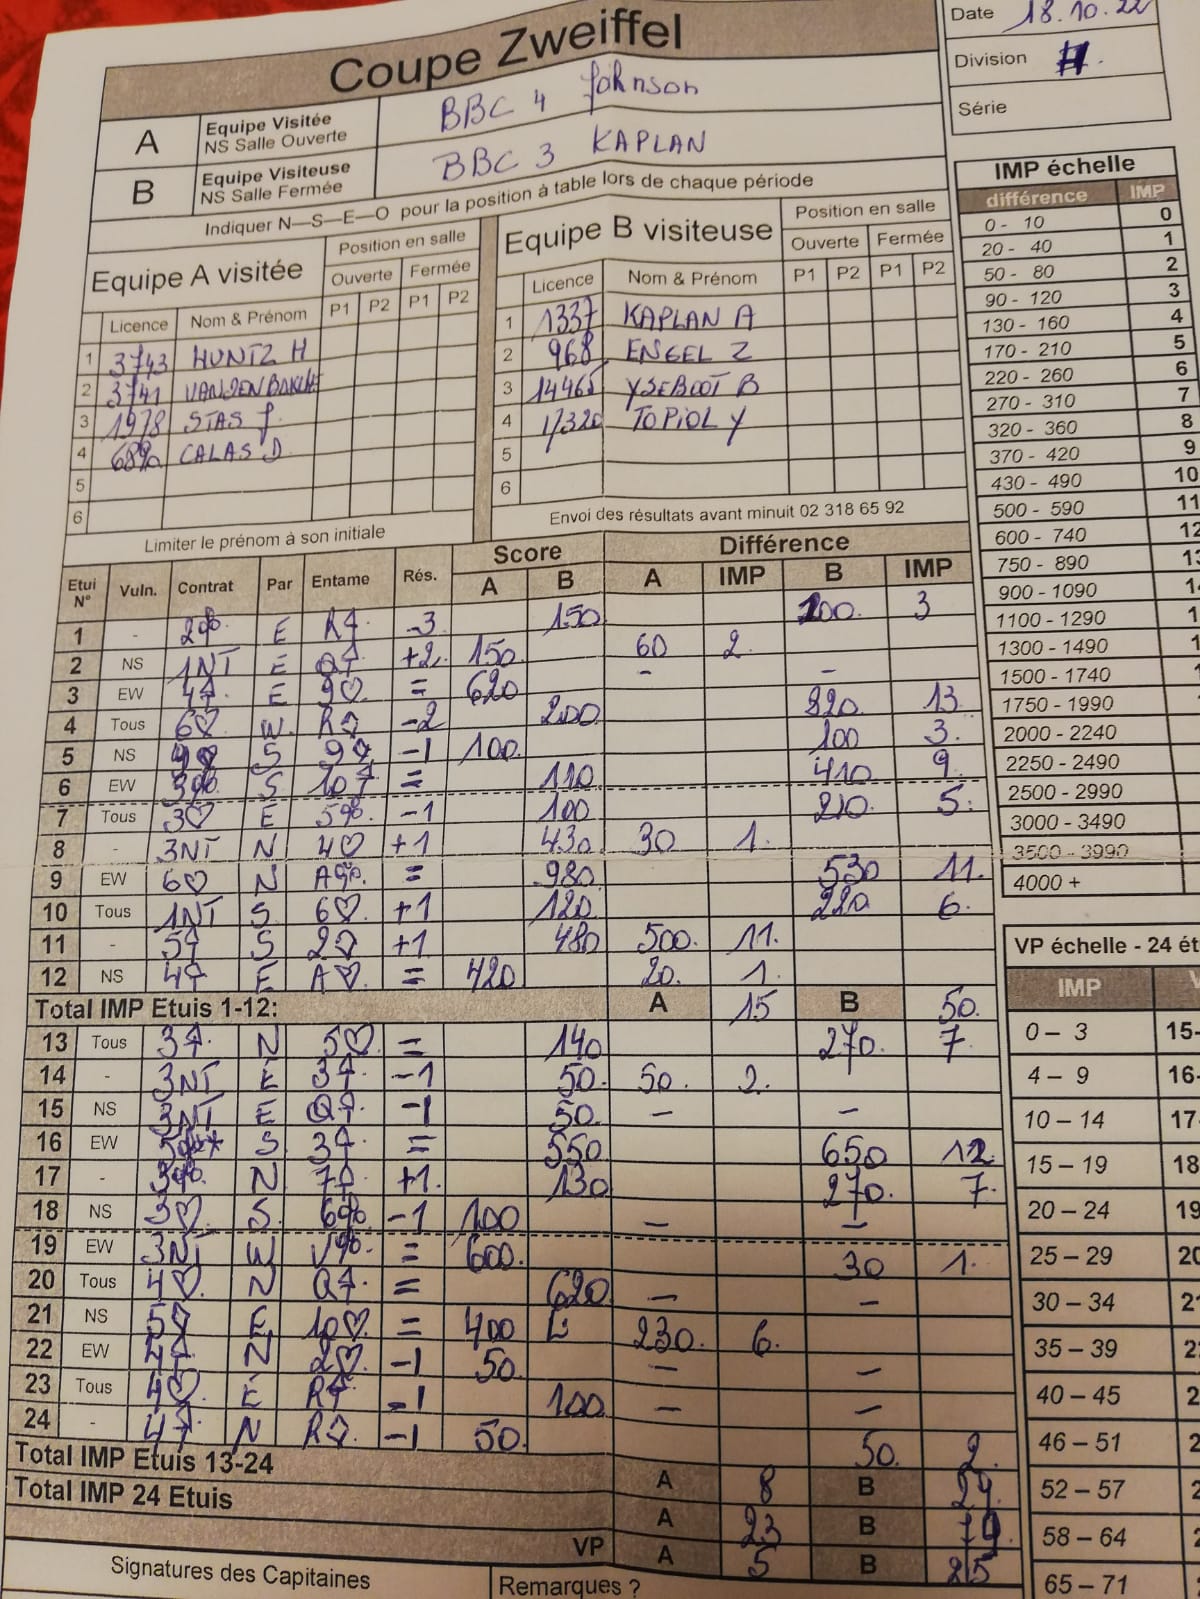 Coupe Zweiffel
Date 18.10.22
Division
Série
A Equipe Visitée BBC 4 Johnson
NS Salle Ouverte
B Equipe Visiteuse BBC 3 KAPLAN
NS Salle Fermée
Indiquer N—S—E—O pour la position à table lors de chaque période
Equipe A visitée
Position en salle
Ouverte Fermée
Licence Nom & Prénom P1 P2 P1 P2
1 3743 HUNTZ H
2 3741
3 1978 STAS J.
4 CALAS D
5
6
Limiter le prénom à son initiale
Equipe B visiteuse
Position en salle
Ouverte Fermée
Licence Nom & Prénom P1 P2 P1 P2
1 1337 KAPLAN A
2 968 ENGEL Z
3 14465 YSEBOOT B
4 17320 TOPIOL Y
5
6
Envoi des résultats avant minuit 02 318 65 92
IMP échelle
différence IMP
0 - 10 0
20 - 40 1
50 - 80 2
90 - 120 3
130 - 160 4
170 - 210 5
220 - 260 6
270 - 310 7
320 - 360 8
370 - 420 9
430 - 490 10
500 - 590 11
600 - 740 12
750 - 890
900 - 1090
1100 - 1290
1300 - 1490
1500 - 1740
1750 - 1990
2000 - 2240
2250 - 2490
2500 - 2990
3000 - 3490
3500 - 3990
4000 +
Score Différence
Etui N° Vuln. Contrat Par Entame Rés. A B A IMP B IMP
1 - 2♣ E R♠ -3 150 100 3
2 NS 1NT E Q♠ +2 150 60 2
3 EW 4♠ E 9♡ = 620 – –
4 Tous 6♡ W R♢ -2 200 820 13
5 NS S -1 100 100 3
6 EW 3♣ S 10♠ = 110 410 9
7 Tous 3♡ E 5♣ -1 100 210 5
8 - 3NT N 4♡ +1 430 30 1
9 EW 6♡ N A♣ = 980 530 11
10 Tous 1NT S 6♡ +1 120 220 6
11 - 5♠ S 2♢ +1 480 500 11
12 NS 4♠ E A♡ = 420 20 1
Total IMP Etuis 1-12: A 15 B 50
13 Tous 3♠ N 5♡ = 140 270 7
14 - 3NT E 3♠ -1 50 50 2
15 NS 3NT E Q♠ -1 50 – –
16 EW 5♣* S 3♠ = 550 650 12
17 - 3♣ N +1 130 270 7
18 NS 3♡ S 6♣ -1 100 – –
19 EW 3NT W V♣ = 600 30 1
20 Tous 4♡ N Q♠ = 620 – –
21 NS E 10♡ = 400 230 6
22 EW 4♠ N 2♡ -1 50 – –
23 Tous 4♡ E R♠ -1 100 – –
24 - 4♠ N R♢ -1 50 50 2
Total IMP Etuis 13-24 A 8 B 29
Total IMP 24 Etuis A 23 B 79
VP A 5 B 25
Signatures des Capitaines
Remarques ?
VP échelle - 24 ét
IMP
0 – 3 15-
4 – 9 16-
10 – 14 17-
15 – 19 18
20 – 24 19
25 – 29 20
30 – 34
35 – 39
40 – 45
46 – 51
52 – 57
58 – 64
65 – 71